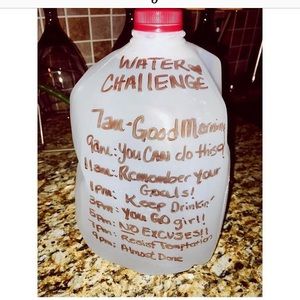 WATER♥
CHALLENGE
7am-Good Morning
9am: you CAN do this
11am: Remember your
Goals!
1pm: Keep Drinkin'
3pm: you GO girl!
5pm: NO EXCUSES!!
7pm: Resist Temptation
9pm: Almost Done